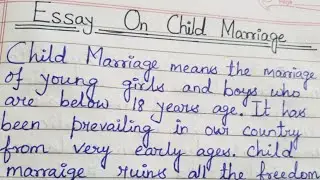 Essay On Child Marriage
Child Marriage means the marriage
of young girls and boys who
are below 18 years age. It has
been prevailing in our country
from very early ages. Child
marraige ruins all the freedom